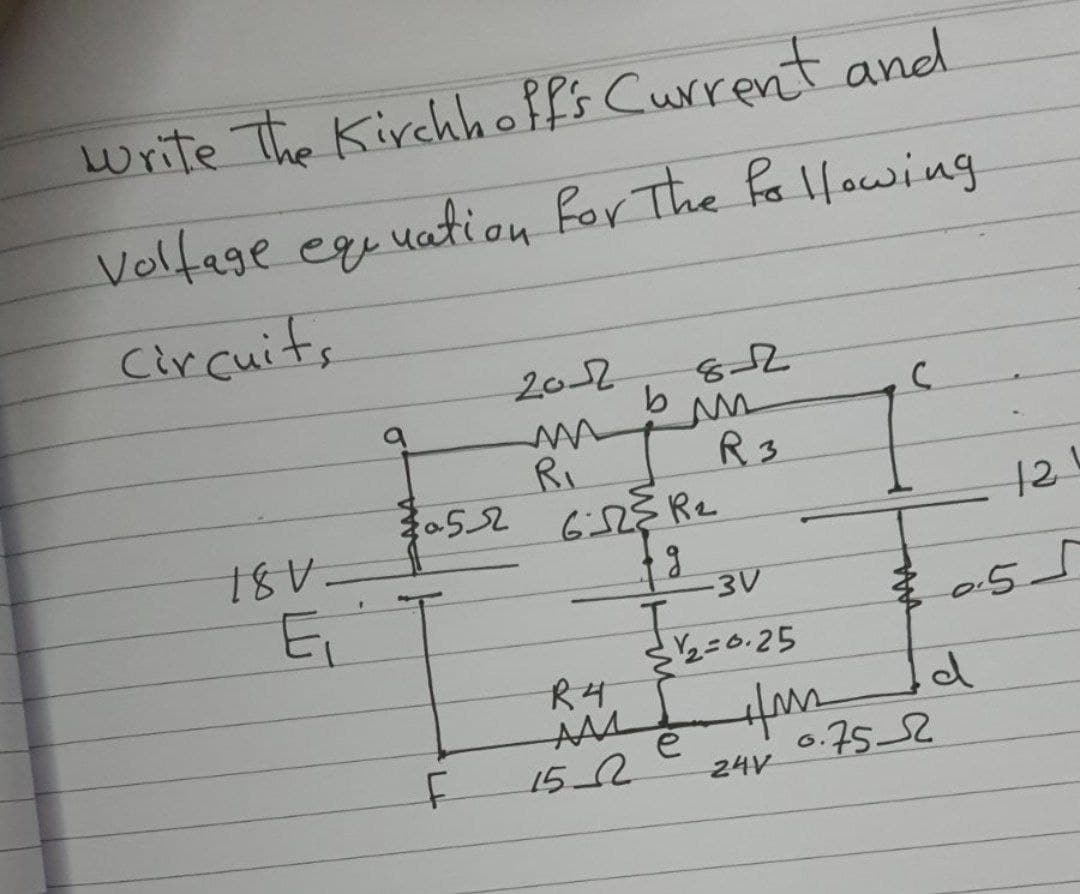 write The Kirchhoff's Current and
Voltage equuation for The following
Circuits
20Ω 8Ω
a b c
R1 R3
0.5Ω 6Ω R2 12V
18V g 3V
E1 0.5
r2=0.25
R4 d
e
F 15Ω 24V 0.75Ω